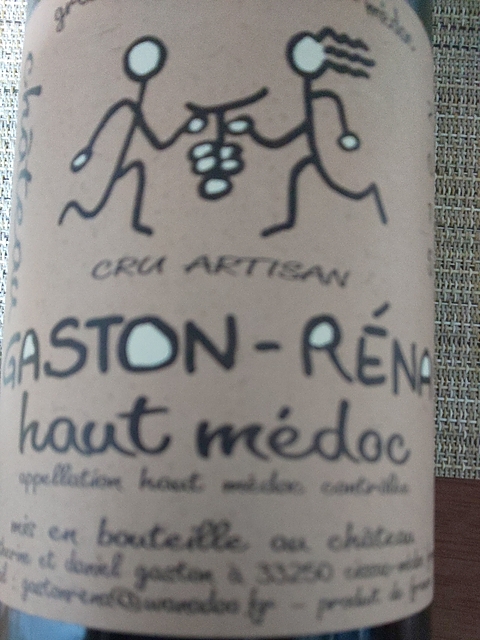 château
CRU ARTISAN
GASTON-RÉNA
haut médoc
appellation haut médoc contrôlée
mis en bouteille au château
et daniel gaston à 33250 cissac-médoc
gastonrena@wanadoo.fr - produit de